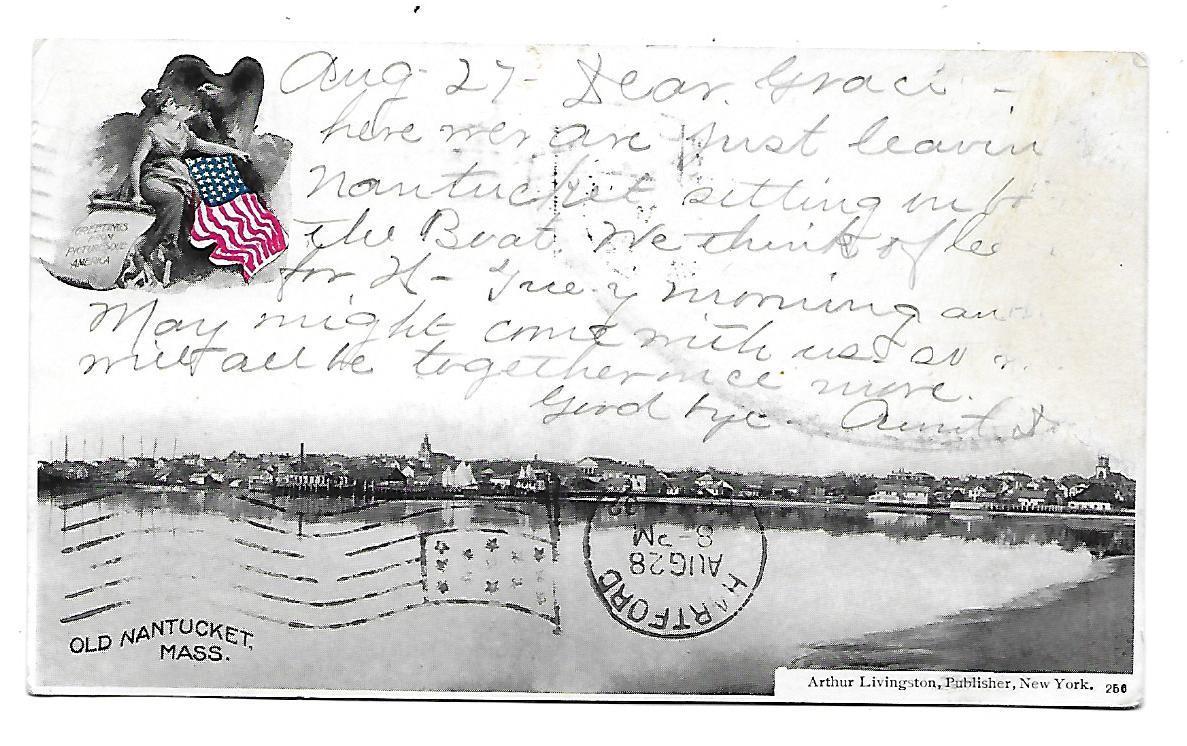 Aug- 27- Dear. Graci -
here wer are just leavin
Nantucket. setting in
The Boat. We think of le
for H- Tue-y morning an
May might come with us. so
will all be together once more.
Good bye - Aunt.
GREETINGS
FROM
PICTURESQUE
AMERICA
HARTFORD
AUG 28
8-PM
OLD NANTUCKET,
MASS.
Arthur Livingston, Publisher, New York. 256